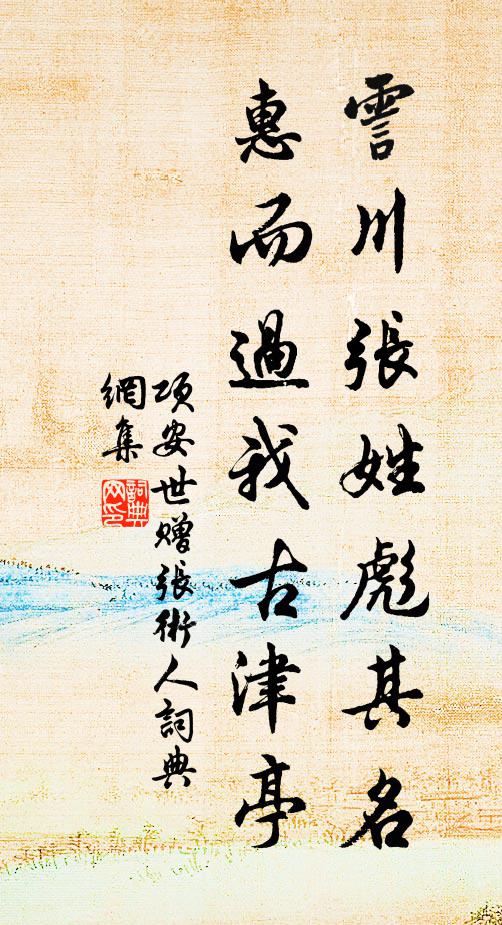 霅川張姓彪其名
惠而過我古津亭
項安世贈張術人詞典
網集
詞典網印